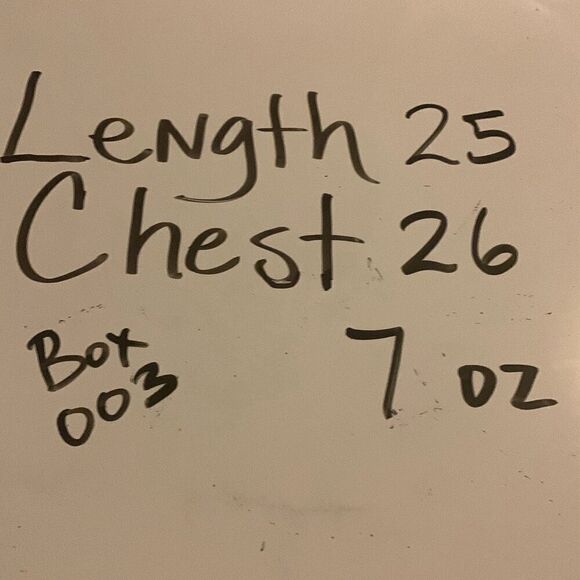 Length 25
Chest 26
Box
003
7 oz